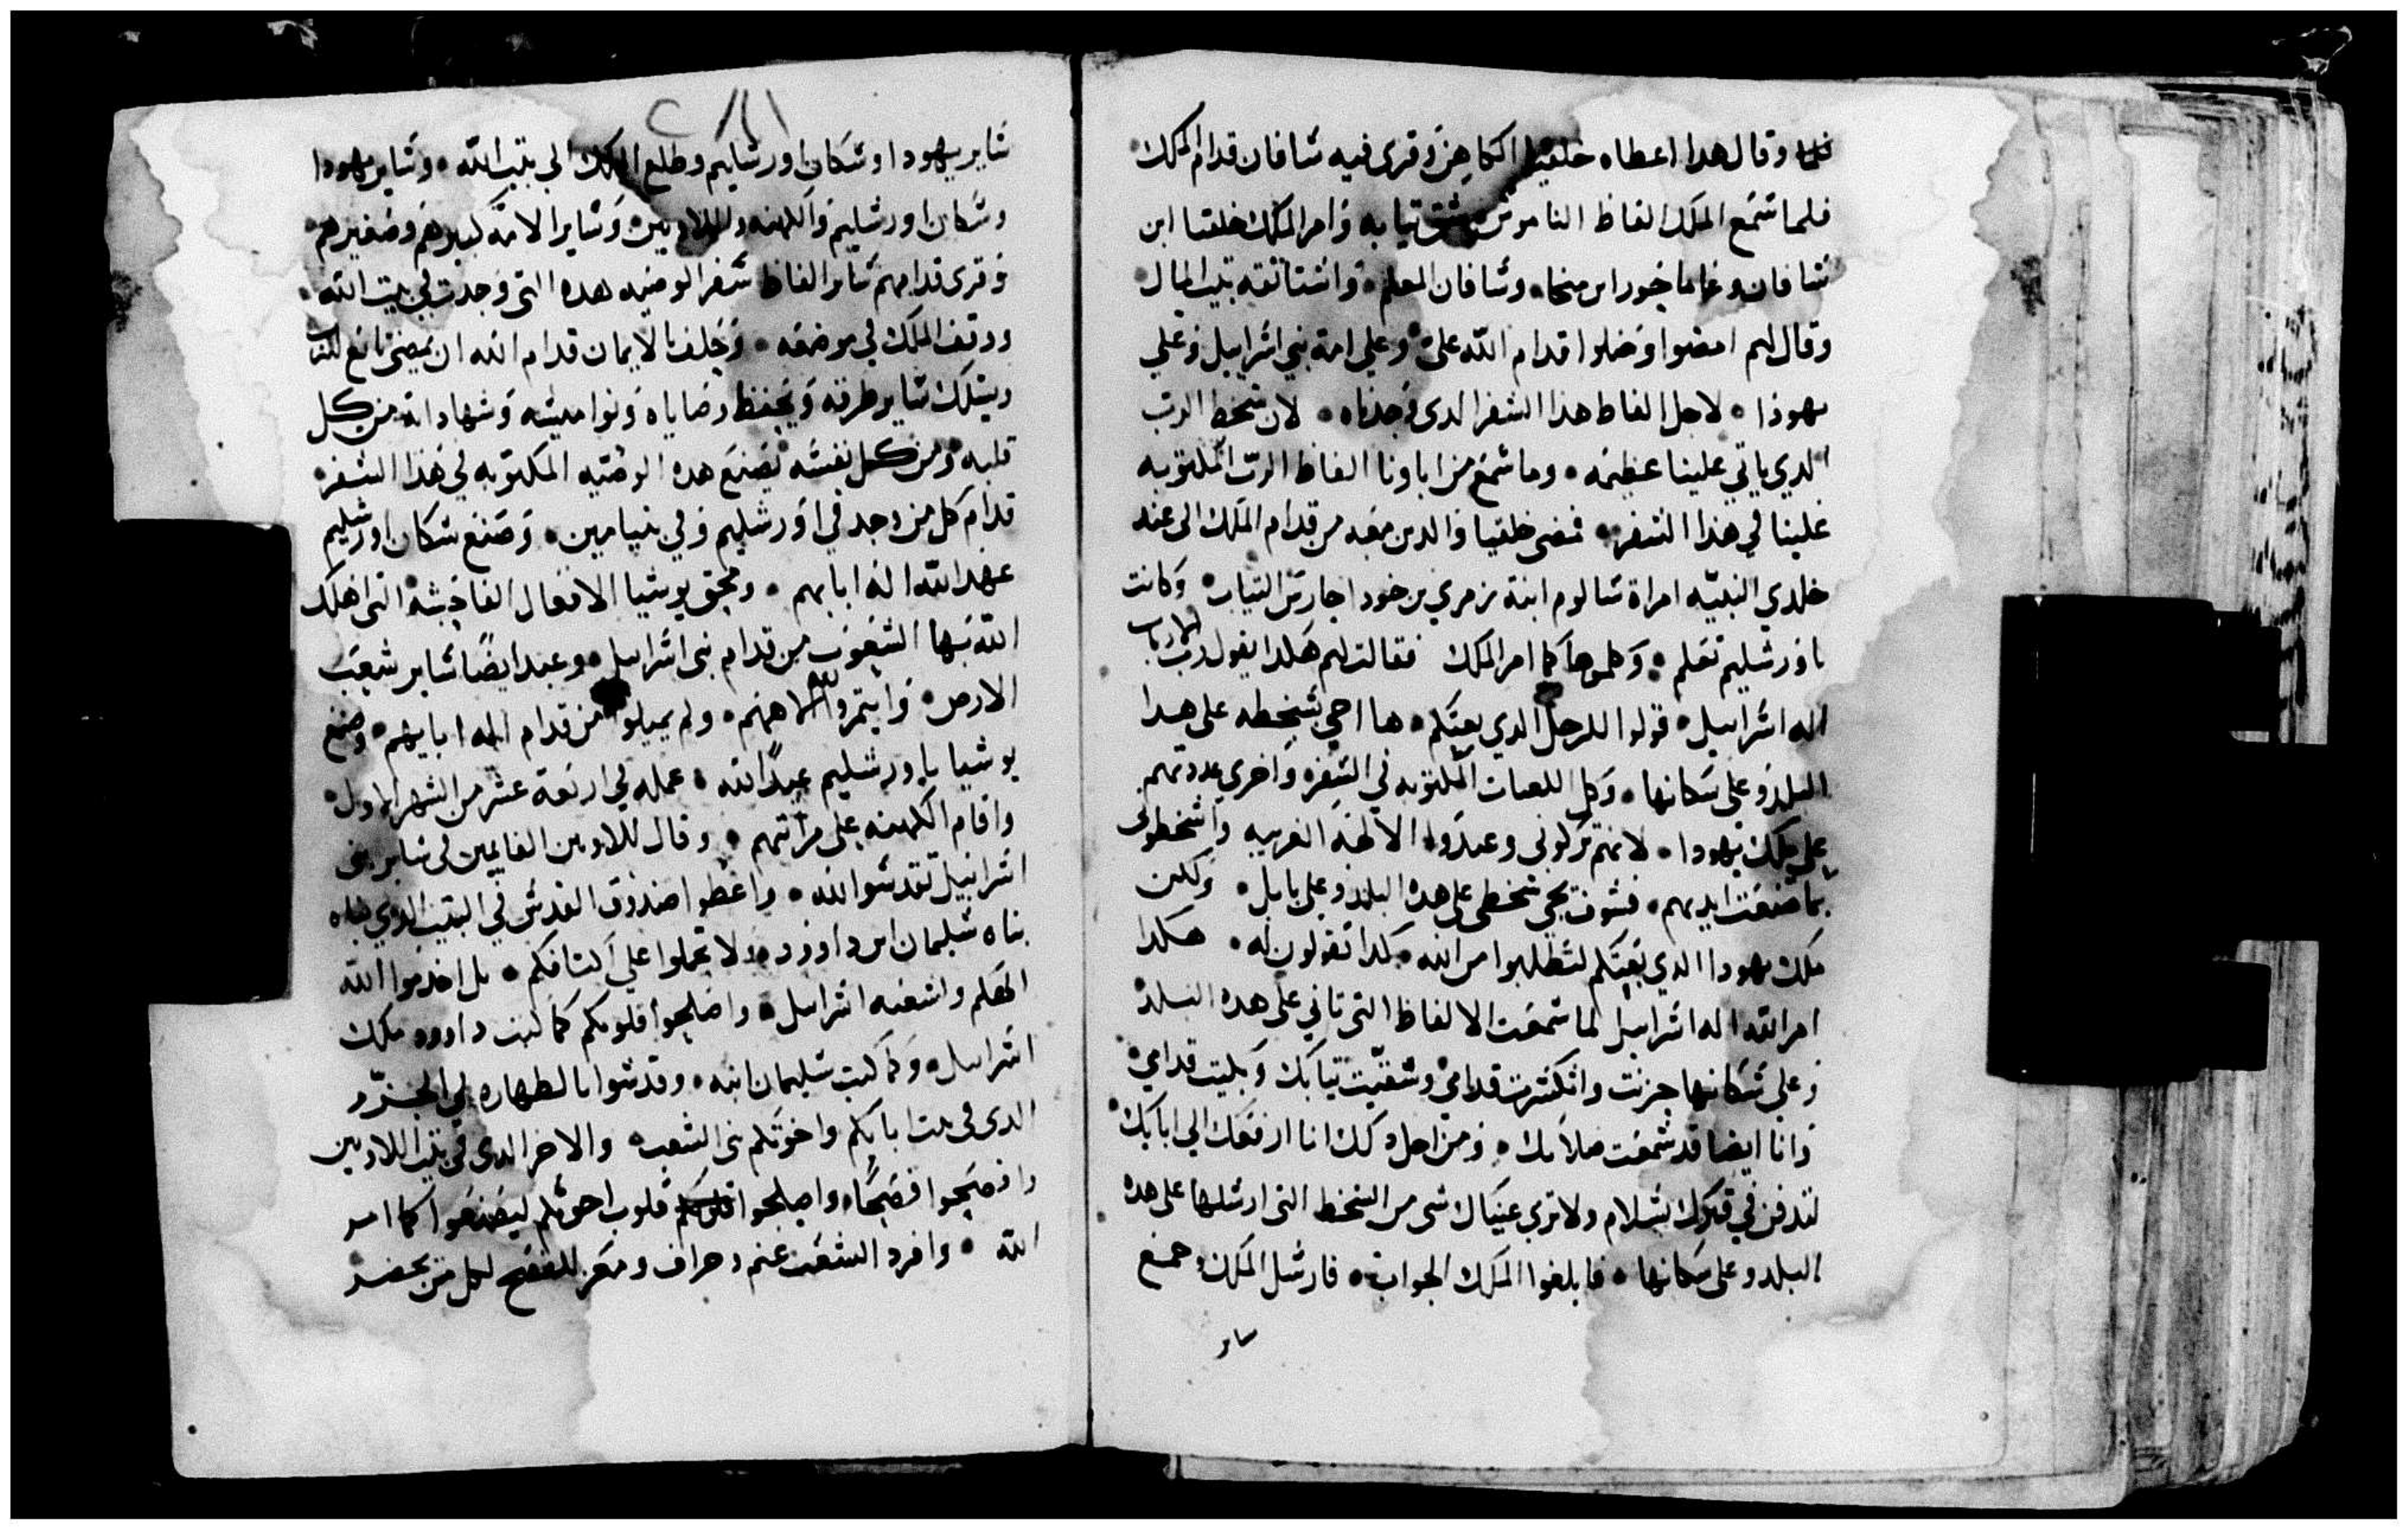 وقال هدا اعطاه خلقيا الكاهن وقرى فيه شافان قدام الملك
فلما سمع الملك الفاظ الناموس شق تيابه وامر الملك خلقيا ابن
شافان وعاماخور ابن ميخا وشافان المعلم واستاثقه بيت المال
وقال لهم امضوا وصلوا قدام الله على وعلى امة بني اسراييل وعلى
يهودا لاجل الفاظ هذا السفر الدى وجدناه لان سخط الرب
الدي ياتي علينا عظيمه وما سمع من اباونا الفاظ الرب المكتوبه
علينا في هذا السفر فمضى خلقيا والدين معه من قدام الملك الى عند
خلدي النبيّه امراة شالوم ابنة زمري بن خودا حارس التياب وكانت
باورشليم تعلم وكلموها كما امر الملك فقالت لهم هكدا يقول رب الارباب
اله اسراييل قولوا للرجل الدي بعتكم ها اجي بسخطه على هدا
البلد وعلى سكانها وكل اللعنات المكتوبه في السفر واخرى عددتهم
على ملك يهودا لانهم تركوني وعبدوا الالهة الغريبه واسخطوني
بما صنعت ايديهم فسوف يجي سخطي على هده البلد وعلى بابل ولكن
ملك يهودا الدي بعتكم لتطلبوا من الله كدا تقولون له هكدا
امر الله اله اسراييل لما سمعت الالفاظ التي تاتي على هده البلد
وعلى سكانها حزنت وانكسرت قدامي وشقيت تيابك وبكيت قدامي
وانا ايضا قد سمعت صلاتك ومن اجل دلك انا ارفعك الى ابايك
لتدفن في قبرك بسلام ولا ترى عينيك شي من السخط التي ارسلها على هده
البلد وعلى سكانها فابلغوا الملك الجواب فارسل الملك وجمع
ساير
ساير يهودا وسكان اورشليم وطلع الملك الى بيت الله وساير يهودا
وسكان اورشليم والكهنه واللاويين وساير الامة كبيرهم وصغيرهم
وقرى قدامهم ساير الفاظ سفر الوصيه هده التي وجدت في بيت الله
ووقف الملك في موضعه وحلف بالايمان قدام الله ان يمضي تابع للكتاب
ويسلك ساير طرقه ويحفظ وصاياه ونواميسه وشهاداته من كل
قلبه ومن كل نفسه يصنع هده الوصيه المكتوبه في هذا السفر
قدام كل من وجد في اورشليم وفي بنيامين وصنع سكان اورشليم
عهد الله اله ابايهم ومحق يوشيا الافعال الفاحشة التي اهلك
الله بها الشعوب من قدام بني اسراييل وعبد ايضا ساير شعب
الارض وايتمروا لالاههم ولم يميلوا من قدام اله ابايهم وصنع
يوشيا باورشليم عيدا لله عمله في اربعة عشر من الشهر الاول
واقام الكهنه على مراتبهم وقال للاويين القايمين في ساير بني
اسراييل تقدسوا لله واعطوا صندوق القدس في البيت الدي بناه
بناه سليمان ابن داوود ولا تحملوا على اكتافكم بل اخدموا الله
الهكم واشعبه اسراييل واصلحوا قلوبكم كما كتب داوود ملك
اسراييل وكما كتب سليمان ابنه وقدسوا بالطهاره
الدى في بيت ابايكم واخوتكم بني الشعب والاخر الدى في بيت اللاويين
وافصحوا فصحا واصلحوا قلوب اخوتكم ليصنعوا كما امر
الله وافرد الشعب غنم وخراف ومعز للفصح لكل من يحضر